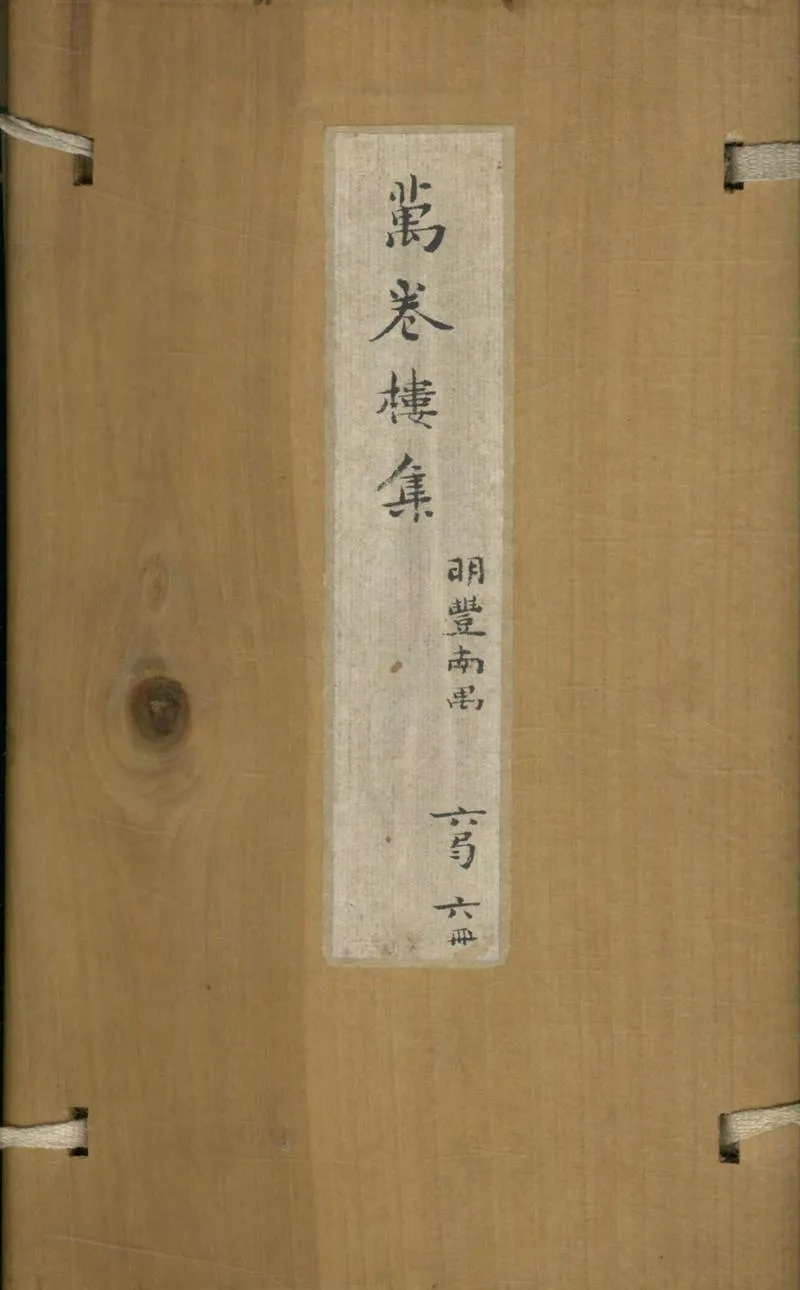 萬卷樓集
明豐南禺
六𢎥 六冊